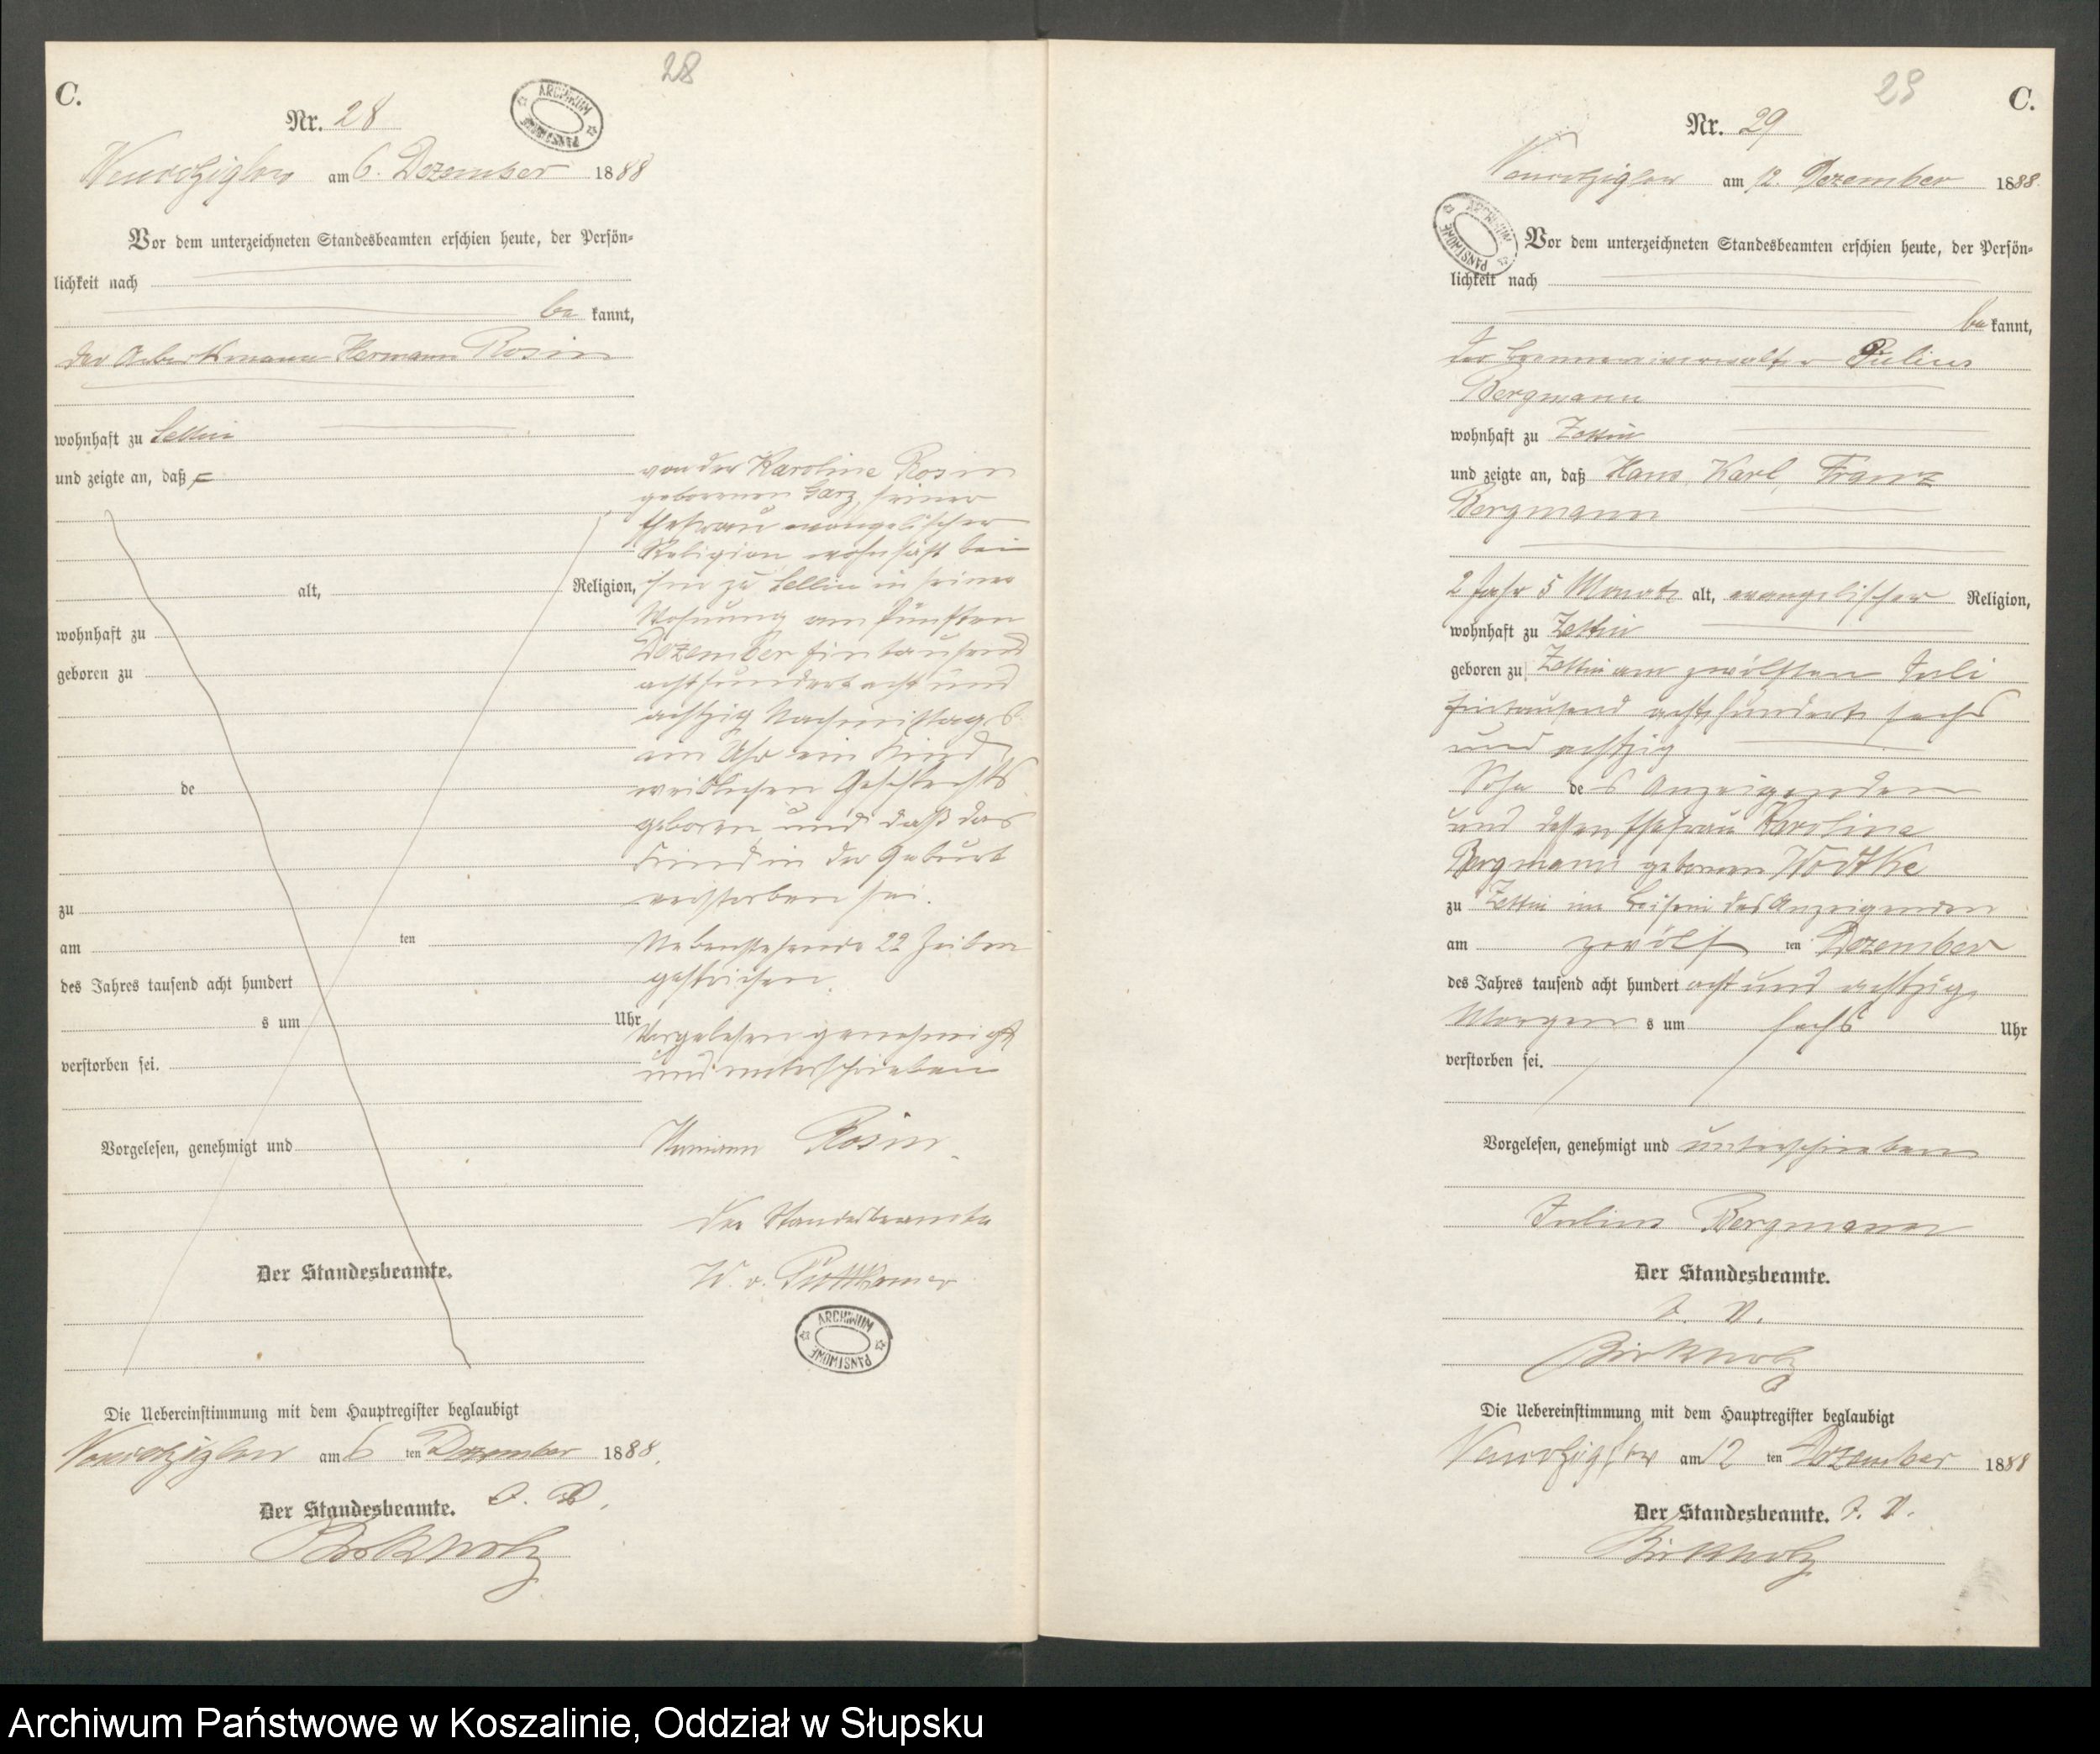 28
C.
Nr. 28
ARCHIWUM PAŃSTWOWE
am 6. Dezember 1888
Vor dem unterzeichneten Standesbeamten erschien heute, der Persön-
lichkeit nach
be kannt,
der Arbeitsmann Hermann Rosin
wohnhaft zu Sellin
und zeigte an, daß
alt, Religion,
wohnhaft zu
geboren zu
de
zu
am ten
des Jahres tausend acht hundert
s um Uhr
verstorben sei.
Vorgelesen, genehmigt und
Der Standesbeamte.
von der Karoline Rosin
geborenen Garz, seiner
Ehefrau evangelischer
Religion wohnhaft bei
ihm zu Sellin in seiner
Wohnung am fünften
Dezember eintausend
achthundert acht und
achtzig Nachmittags
um Uhr ein Kind
weiblichen Geschlechts
geboren und daß das
Kind in der Geburt
verstorben sei.
Nebenstehende 22 Zeilen
gestrichen.
Vorgelesen genehmigt
und unterschrieben
Hermann Rosin
Der Standesbeamte
W. v. Puttkamer
ARCHIWUM PAŃSTWOWE
Die Uebereinstimmung mit dem Hauptregister beglaubigt
am 6 ten Dezember 1888.
Der Standesbeamte. J. V.
Birkholz
29
C.
Nr. 29
am 12. Dezember 1888.
ARCHIWUM PAŃSTWOWE
Vor dem unterzeichneten Standesbeamten erschien heute, der Persön-
lichkeit nach
be kannt,
der Brennereiverwalter Julius
Bergmann
wohnhaft zu Zettin
und zeigte an, daß Hans, Karl, Franz
Bergmann
2 Jahr 5 Monate alt, evangelischer Religion,
wohnhaft zu Zettin
geboren zu Zettin am zwölften Juli
eintausend achthundert sechs
und achtzig
Sohn de s Anzeigenden
und dessen Ehefrau Karoline
Bergmann geborenen Wodtke
zu Zettin im Beisein des Anzeigenden
am zwölf ten Dezember
des Jahres tausend acht hundert acht und achtzig
Morgen s um sechs Uhr
verstorben sei.
Vorgelesen, genehmigt und unterschrieben
Julius Bergmann
Der Standesbeamte.
J. V.
Birkholz
Die Uebereinstimmung mit dem Hauptregister beglaubigt
am 12 ten Dezember 1888
Der Standesbeamte. J. V.
Birkholz
Archiwum Państwowe w Koszalinie, Oddział w Słupsku